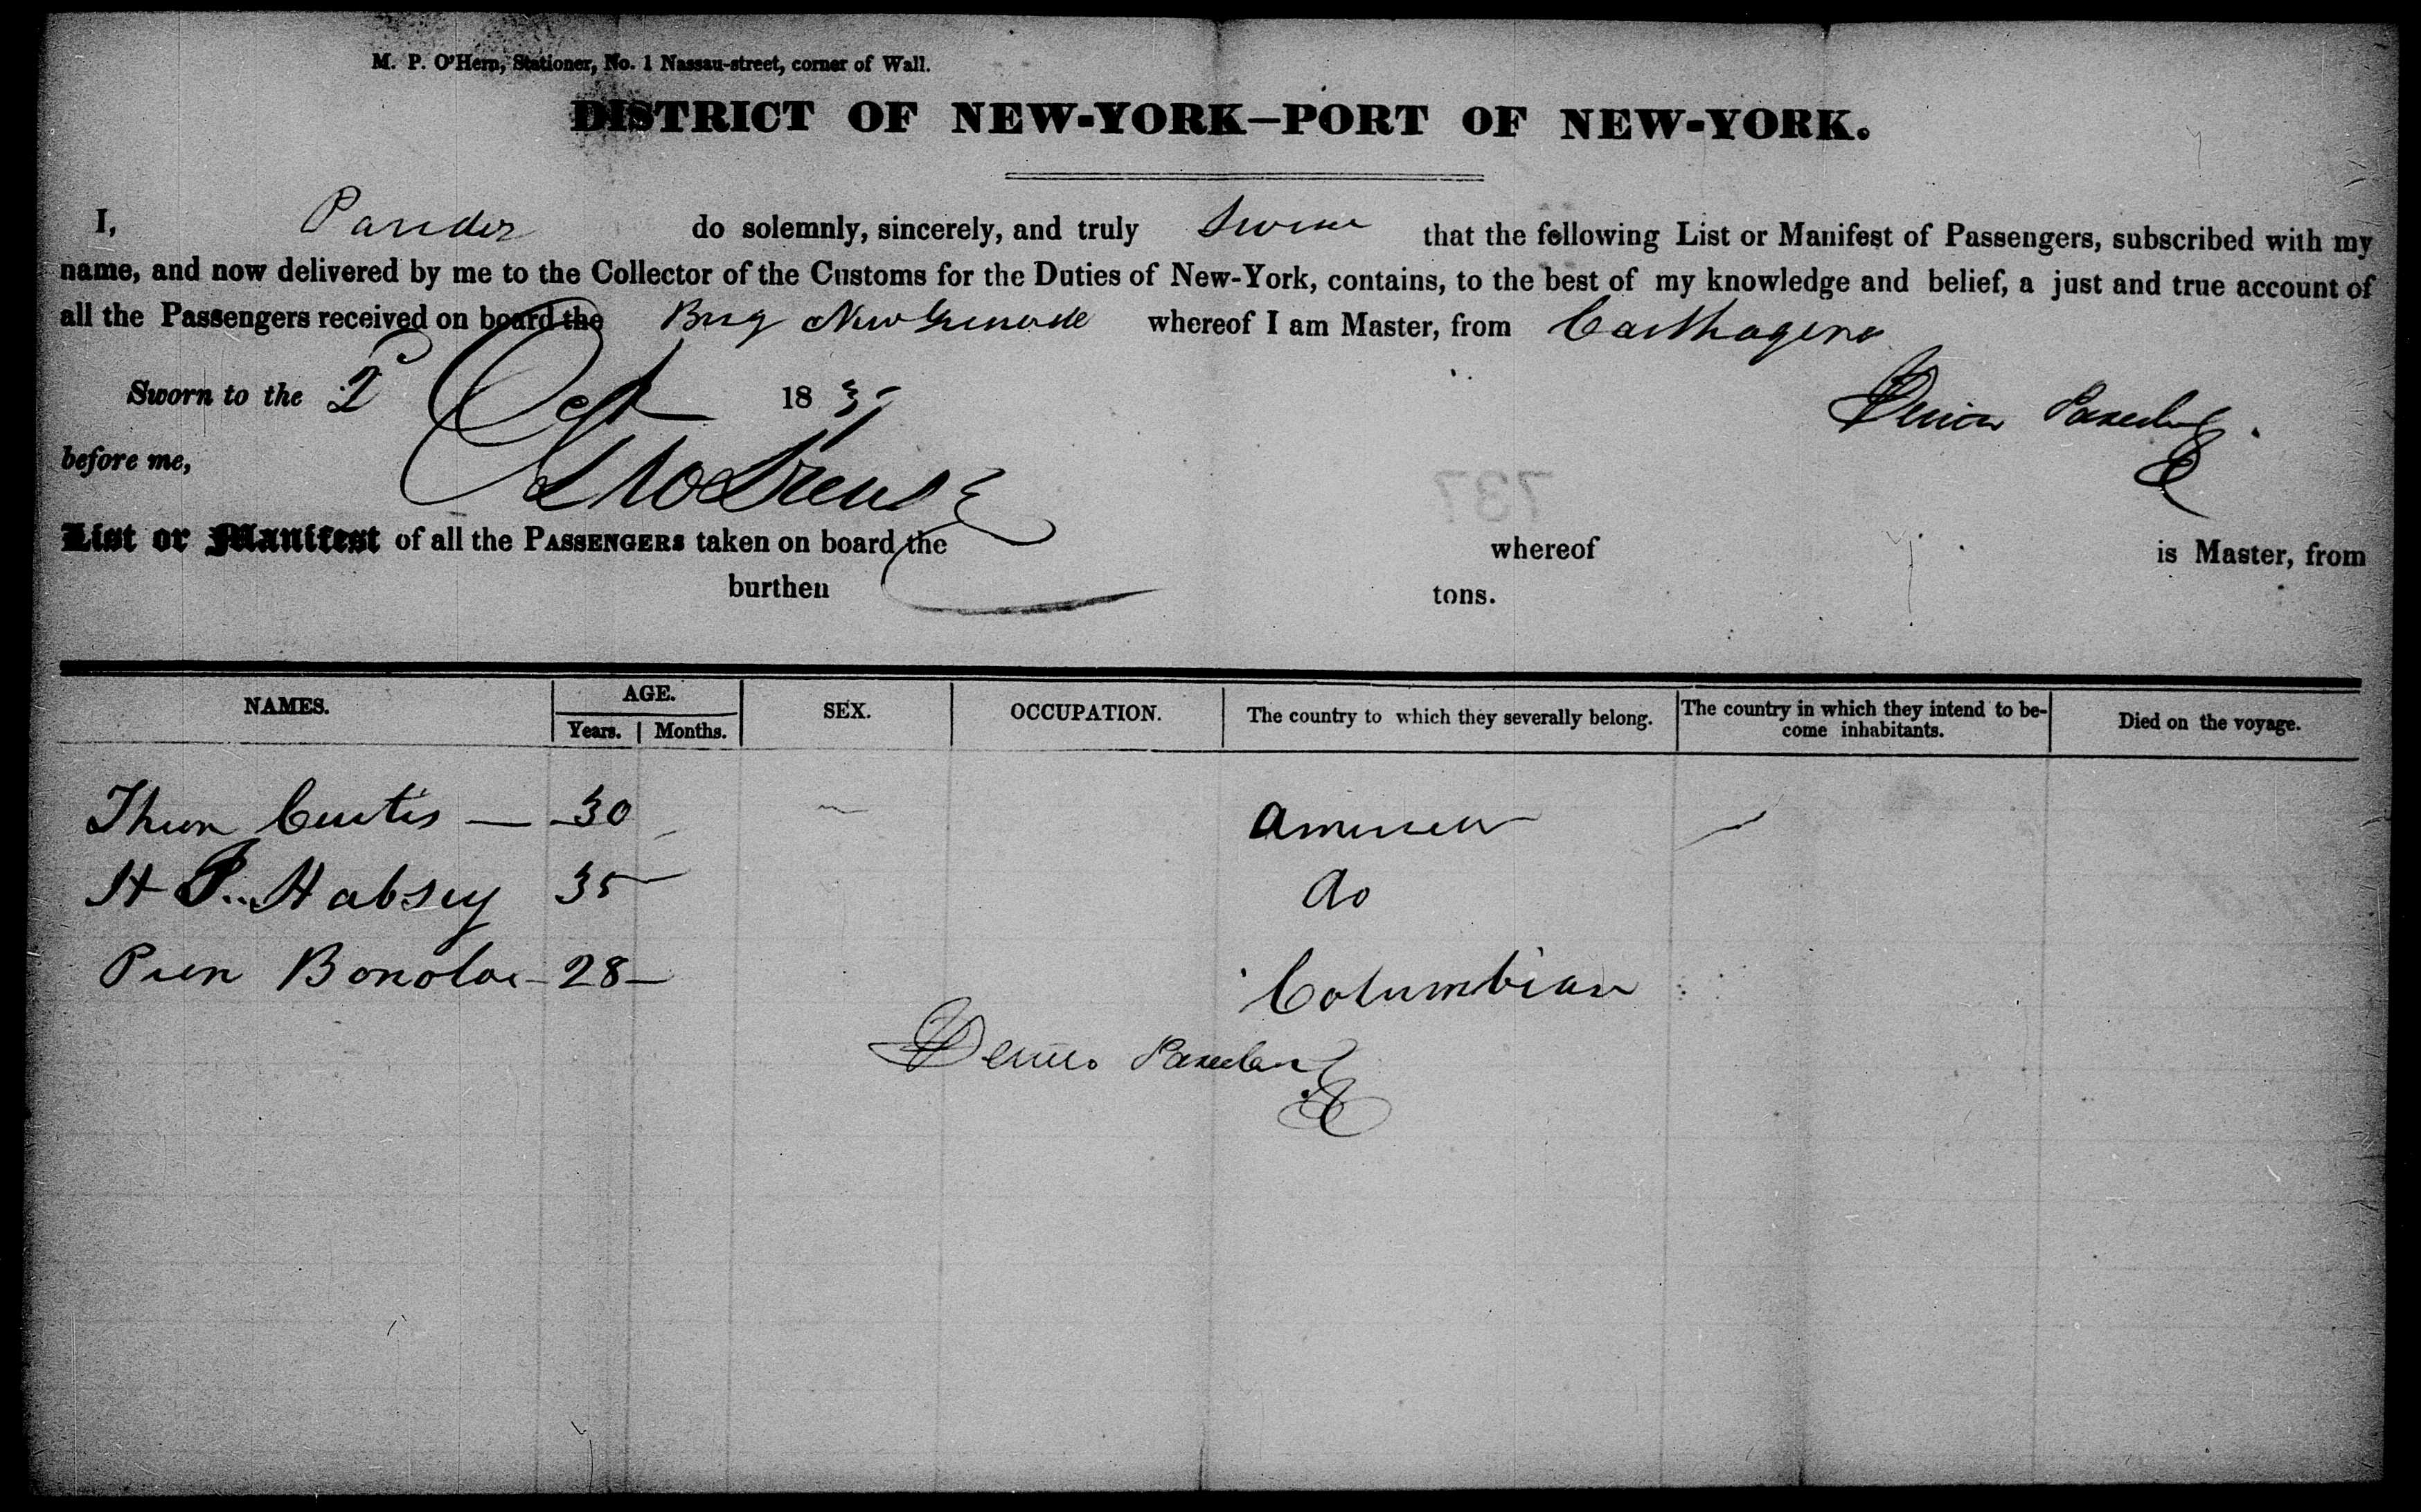 M. P. O'Hern, Stationer, No. 1 Nassau-street, corner of Wall.
DISTRICT OF NEW-YORK—PORT OF NEW-YORK.
I, do solemnly, sincerely, and truly that the following List or Manifest of Passengers, subscribed with my
name, and now delivered by me to the Collector of the Customs for the Duties of New-York, contains, to the best of my knowledge and belief, a just and true account of
all the Passengers received on board the Brig New Grenade whereof I am Master, from Carthagena
Sworn to the 2 Oct 183
before me,
737
List or Manifest of all the PASSENGERS taken on board the whereof is Master, from
burthen tons.
NAMES. AGE. SEX. OCCUPATION. The country to which they severally belong. The country in which they intend to be-
come inhabitants. Died on the voyage.
Years. Months.
Curtis — 30
H P. Habsey 35 do
28 — Columbian